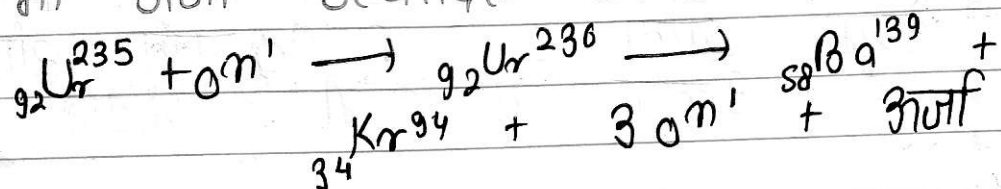 ₉₂Ur²³⁵ + ₀n¹ → ₉₂Ur²³⁶ → ₅₈Ba¹³⁹ +
₃₄Kr⁹⁴ + 3 ₀n¹ + ऊर्जा